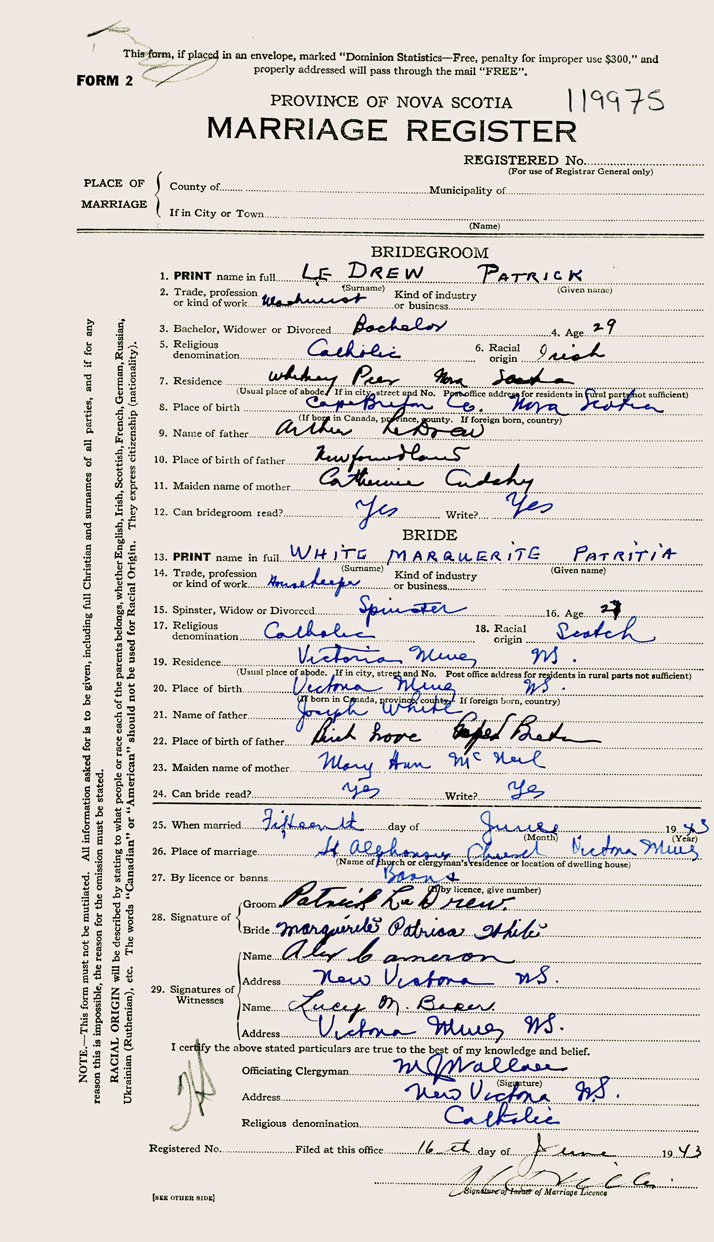 This form, if placed in an envelope, marked "Dominion Statistics—Free, penalty for improper use $300," and
properly addressed will pass through the mail "FREE".
FORM 2
PROVINCE OF NOVA SCOTIA 119975
MARRIAGE REGISTER
REGISTERED No.
(For use of Registrar General only)
PLACE OF MARRIAGE
County of Municipality of
If in City or Town
(Name)
BRIDEGROOM
1. PRINT name in full LE DREW PATRICK
(Surname) (Given name)
2. Trade, profession or kind of work Machinist Kind of industry or business
3. Bachelor, Widower or Divorced Bachelor 4. Age 29
5. Religious denomination Catholic 6. Racial origin Irish
7. Residence Whitney Pier Nova Scotia
(Usual place of abode. If in city, street and No. Post office address for residents in rural parts not sufficient)
8. Place of birth Cape Breton Co. Nova Scotia
(If born in Canada, province, county. If foreign born, country)
9. Name of father Arthur LeDrew
10. Place of birth of father Newfoundland
11. Maiden name of mother Catherine Cudahy
12. Can bridegroom read? Yes Write? Yes
BRIDE
13. PRINT name in full WHITE MARQUERITE PATRITIA
(Surname) (Given name)
14. Trade, profession or kind of work Housekeeper Kind of industry or business
15. Spinster, Widow or Divorced Spinster 16. Age
17. Religious denomination Catholic 18. Racial origin Scotch
19. Residence Victoria Mines NS.
(Usual place of abode. If in city, street and No. Post office address for residents in rural parts not sufficient)
20. Place of birth Victoria Mines NS.
(If born in Canada, province, county. If foreign born, country)
21. Name of father Joseph White
22. Place of birth of father Birch Grove Cape Breton
23. Maiden name of mother Mary Ann McNeil
24. Can bride read? yes Write? Yes
25. When married Fifteenth day of June 1943
(Month) (Year)
26. Place of marriage St Alphonsus Church Victoria Mines
(Name of church or clergyman's residence or location of dwelling house)
27. By licence or banns Banns
(If by licence, give number)
28. Signature of
Groom Patrick Le Drew
Bride Marguerite Patricia White
29. Signatures of Witnesses
Name Alex Cameron
Address New Victoria NS.
Name Lucy M. Baker
Address Victoria Mines NS.
I certify the above stated particulars are true to the best of my knowledge and belief.
Officiating Clergyman M J Wallace
(Signature)
Address New Victoria NS.
Religious denomination Catholic
Registered No. Filed at this office 16th day of June 1943
Signature of Issuer of Marriage Licence
[SEE OTHER SIDE]
NOTE.—This form must not be mutilated. All information asked for is to be given, including full Christian and surnames of all parties, and if for any
reason this is impossible, the reason for the omission must be stated.
RACIAL ORIGIN will be described by stating to what people or race each of the parents belongs, whether English, Irish, Scottish, French, German, Russian,
Ukrainian (Ruthenian), etc. The words "Canadian" or "American" should not be used for Racial Origin. They express citizenship (nationality).